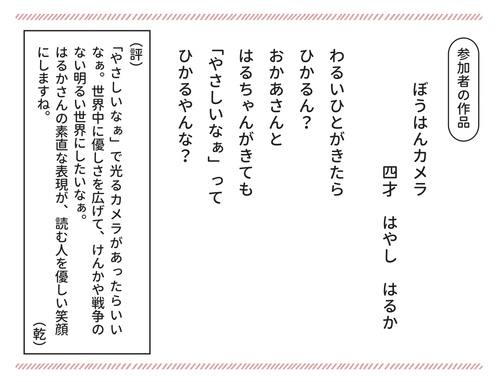 参加者の作品
ぼうはんカメラ
四才　はやし　はるか
わるいひとがきたら
ひかるん？
おかあさんと
はるちゃんがきても
「やさしいなぁ」って
ひかるやんな？
（評）
「やさしいなぁ」で光るカメラがあったらいい
なぁ。世界中に優しさを広げて、けんかや戦争の
ない明るい世界にしたいなぁ。
はるかさんの素直な表現が、読む人を優しい笑顔
にしますね。
（乾）